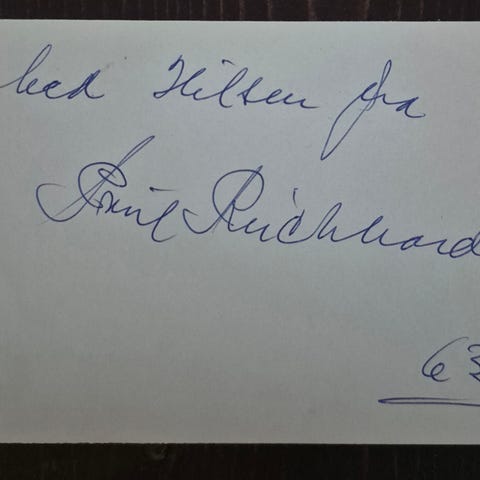 Med Hilsen fra
Poul Reichhard
63